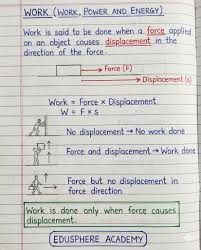 WORK (WORK, POWER AND ENERGY)
Work is said to be done when a force applied
on an object causes displacement in the
direction of the force.
→ Force (F)
→ Displacement (s)
Work = Force × Displacement
W = F × s
No displacement → No work done
Force and displacement → Work done
Force but no displacement in
force direction
Work is done only when force causes
displacement.
EDUSPHERE ACADEMY